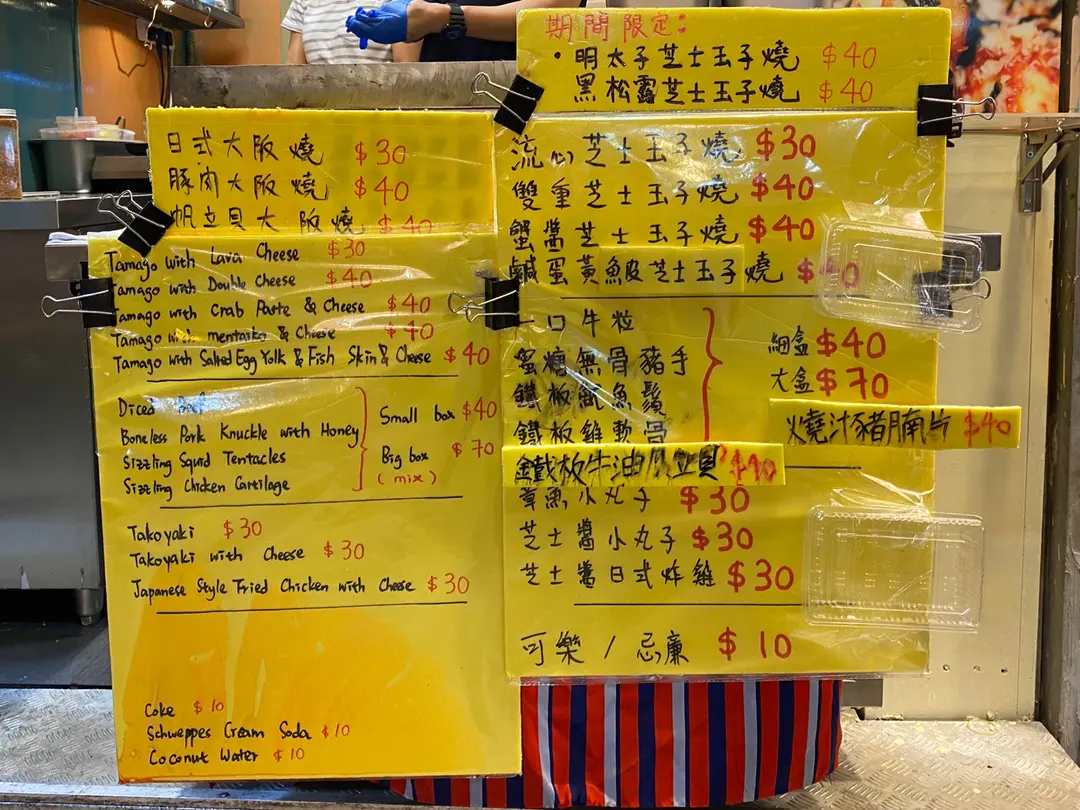 期間限定:
• 明太子芝士玉子燒 $40
黑松露芝士玉子燒 $40
日式大阪燒 $30
豚肉大阪燒 $40
帆立貝大阪燒 $40
Tamago with Lava Cheese $30
Tamago with Double Cheese $40
Tamago with Crab Paste & Cheese $40
Tamago with mentaiko & Cheese $40
Tamago with Salted Egg Yolk & Fish Skin & Cheese $40
Diced Beef
Boneless Pork Knuckle with Honey
Sizzling Squid Tentacles
Sizzling Chicken Cartilage
Small box $40
Big box $70
(mix)
Takoyaki $30
Takoyaki with Cheese $30
Japanese Style Fried Chicken with Cheese $30
Coke $10
Schweppes Cream Soda $10
Coconut Water $10
流心芝士玉子燒 $30
雙重芝士玉子燒 $40
蟹醬芝士玉子燒 $40
鹹蛋黃魚皮芝士玉子燒 $40
一口牛粒
蜜糖無骨豬手
鐵板魷魚鬚
鐵板雞軟骨
細盒 $40
大盒 $70
燒汁豬腩片 $40
鐵板牛油 立貝 $40
章魚小丸子 $30
芝士醬小丸子 $30
芝士醬日式炸雞 $30
可樂 / 忌廉 $10